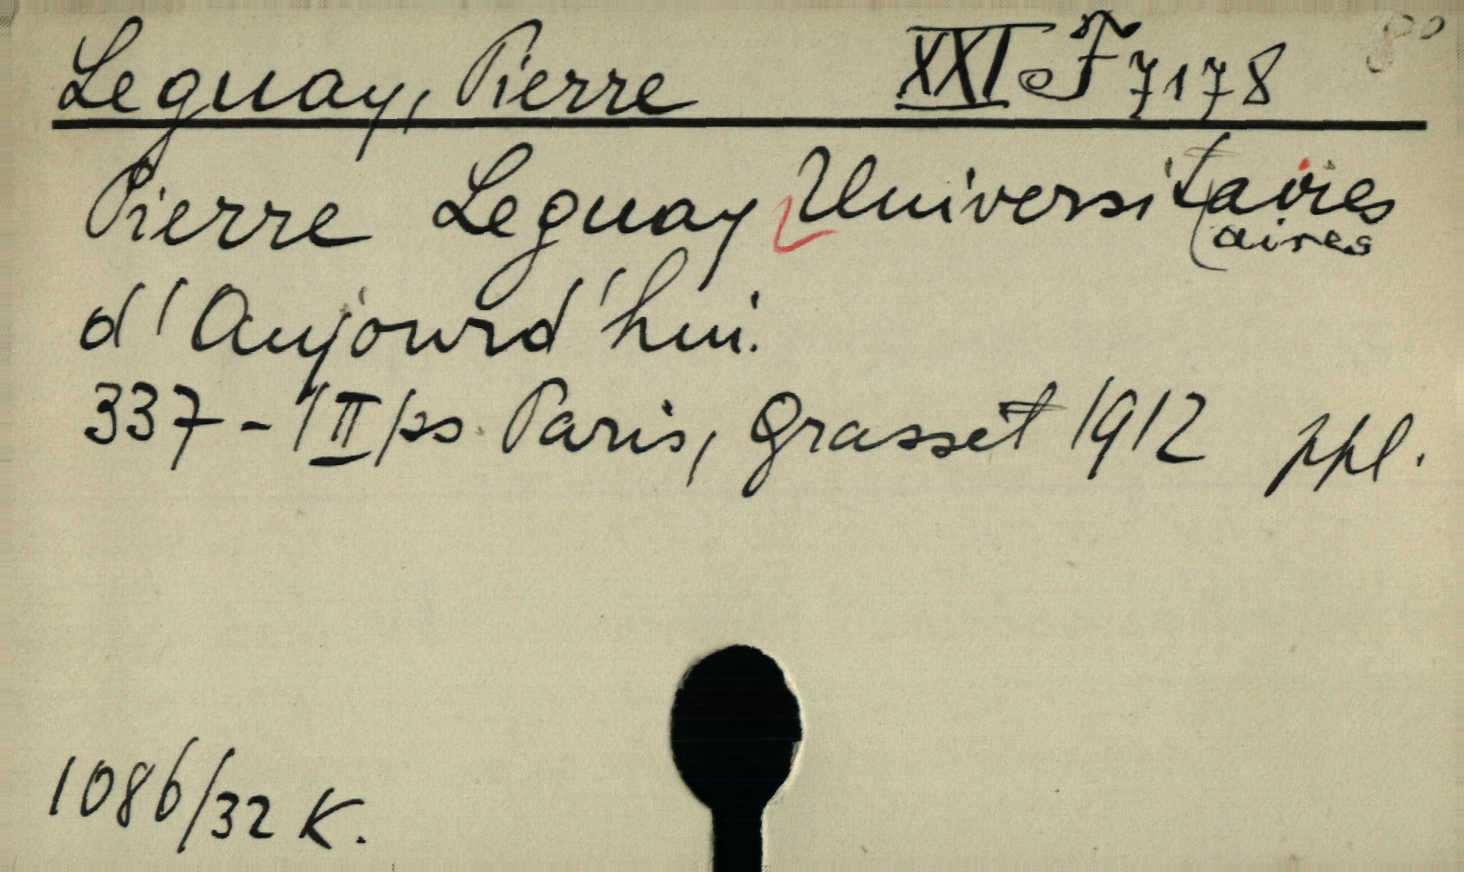 Leguay, Pierre XXI F 7178 8°
Pierre Leguay Universitaires
aires
d'Aujourd'hui.
337 - /II/ ss. Paris, Grasset 1912 ppl.
1086/32 K.